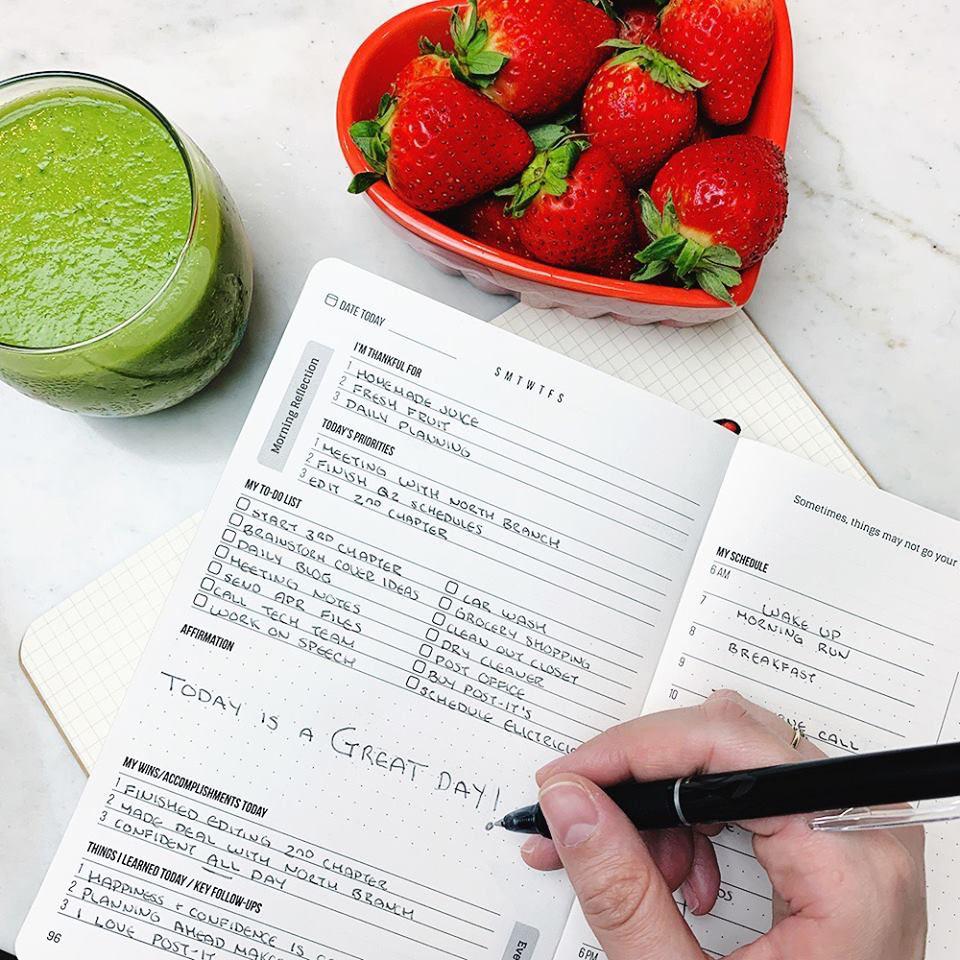 DATE TODAY
S M T W T F S
Morning Reflection
I'M THANKFUL FOR
1 HOMEMADE JUICE
2 FRESH FRUIT
3 DAILY PLANNING
TODAY'S PRIORITIES
1 MEETING WITH NORTH BRANCH
2 FINISH Q2 SCHEDULES
3 EDIT 2ND CHAPTER
MY TO-DO LIST
START 3RD CHAPTER
BRAINSTORM COVER IDEAS
DAILY BLOG
MEETING NOTES
SEND APR FILES
CALL TECH TEAM
WORK ON SPEECH
CAR WASH
GROCERY SHOPPING
CLEAN OUT CLOSET
DRY CLEANER
POST OFFICE
BUY POST-IT'S
SCHEDULE
AFFIRMATION
TODAY IS A GREAT DAY!
MY WINS/ACCOMPLISHMENTS TODAY
1 FINISHED EDITING 2ND CHAPTER
2 MADE DEAL WITH NORTH BRANCH
3 CONFIDENT ALL DAY
THINGS I LEARNED TODAY / KEY FOLLOW-UPS
1 HAPPINESS + CONFIDENCE IS
2 PLANNING AHEAD
3 I LOVE POST-IT
96
Sometimes, things may not go your
MY SCHEDULE
6 AM
7 WAKE UP
MORNING RUN
8 BREAKFAST
9
10
CALL
6 PM